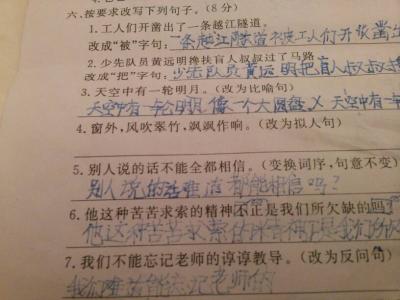 六、按要求改写下列句子。(8分)
1. 工人们开凿出了一条越江隧道。
改成“被”字句：一条越江隧道被工人们开凿出
2. 少先队员黄远明搀扶盲人叔叔过了马路
改成“把”字句：少先队员黄远明把盲人叔叔
3. 天空中有一轮明月。(改为比喻句)
天空中有一轮明月像一个大圆盘 天空中有一
4. 窗外，风吹翠竹，飒飒作响。(改为拟人句)
5. 别人说的话不能全都相信。(变换词序，句意不变)
别人说的话难道都能相信吗？
6. 他这种苦苦求索的精神不正是我们所欠缺的吗？
他这种苦苦求索的 精神 是我们
7. 我们不能忘记老师的谆谆教导。(改为反问句)
我们难道能忘记老师的